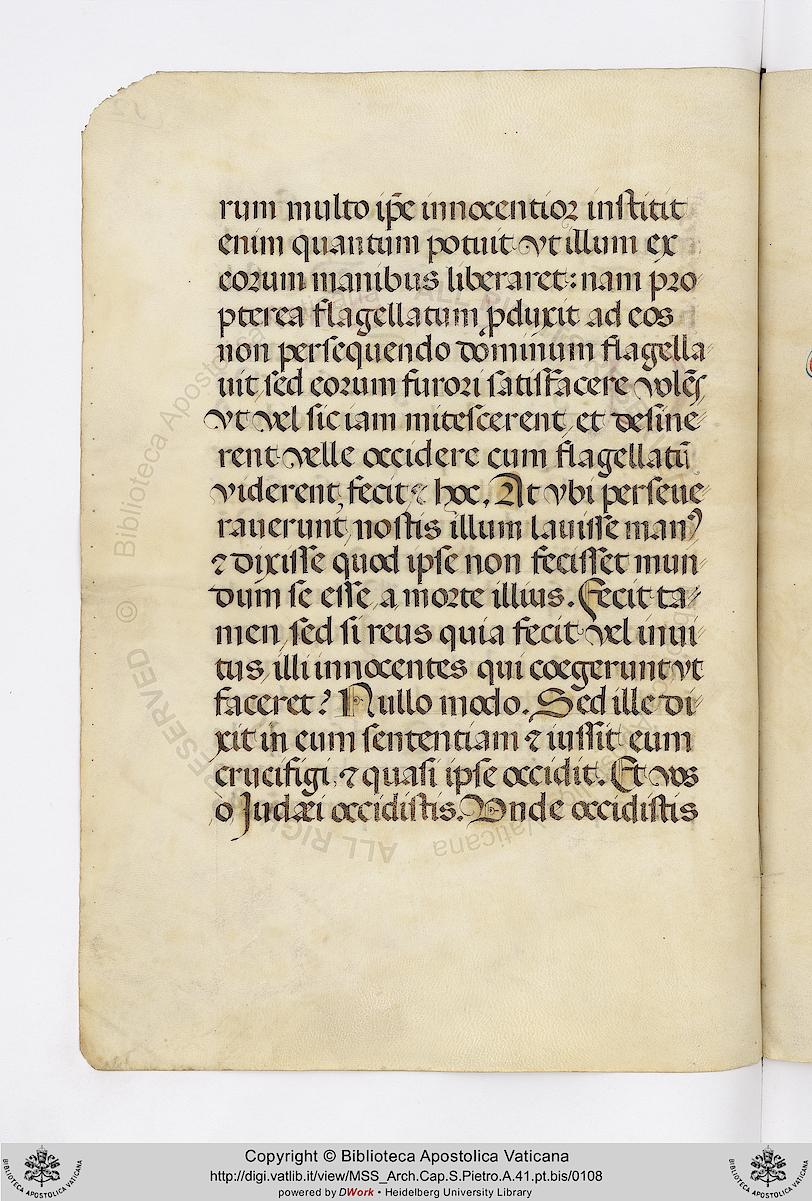 rum multo ip̄e innocentioꝛ institit
enim quantum potuit vt illum ex
eorum manibus liberaret: nam pro
pterea flagellatum ꝓduxit ad eos
non persequendo dominum flagella
uit sed eorum furori satisfacere volēs
vt vel sic iam mitescerent, et desine
rent velle occidere cum flagellatū
viderent, fecit ⁊ hoc. At vbi perseue
rauerunt, nostis illum lauisse manꝰ
⁊ dixisse quod ipse non fecisset mun
dum se esse a morte illius. Fecit ta
men, sed si reus quia fecit vel inui
tus, illi innocentes qui coegerunt vt
faceret? Nullo modo. Sed ille di
xit in eum sententiam ⁊ iussit eum
crucifigi, ⁊ quasi ipse occidit. Et vos
o Judæi occidistis. Vnde occidistis
Copyright © Biblioteca Apostolica Vaticana
http://digi.vatlib.it/view/MSS_Arch.Cap.S.Pietro.A.41.pt.bis/0108
powered by DWork • Heidelberg University Library